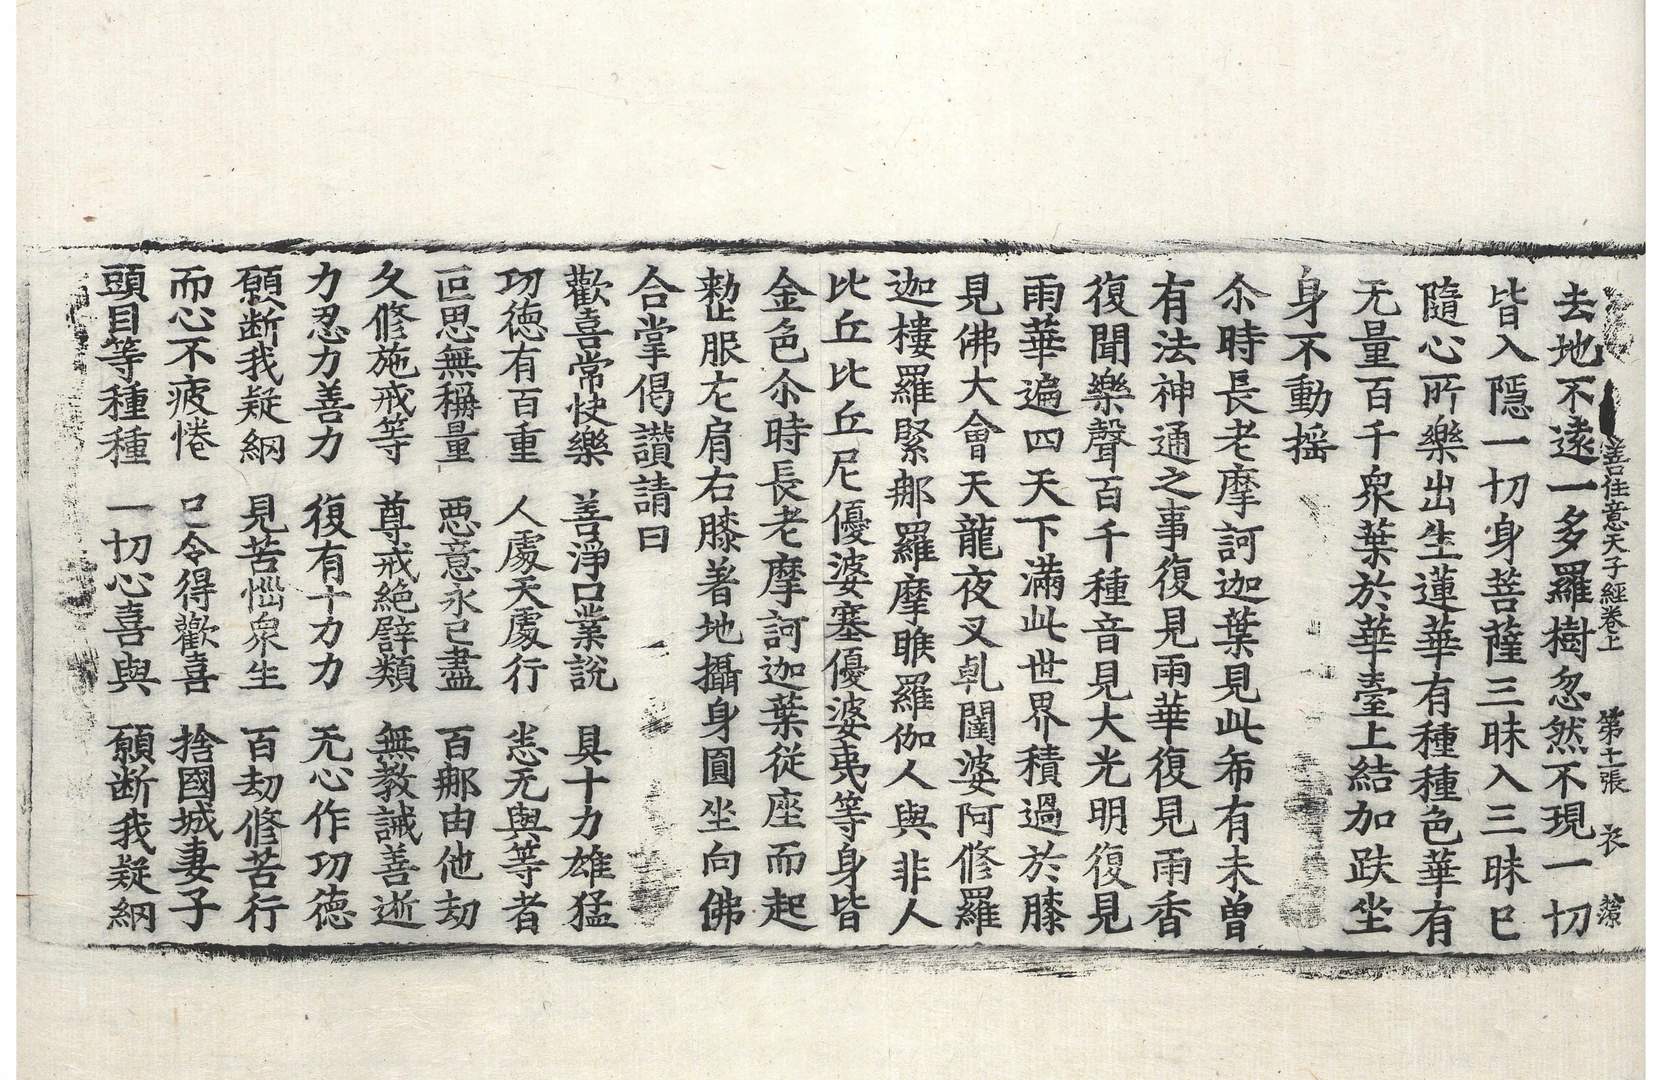 善住意天子經卷上 第十一張 衣
去地不遠一多羅樹忽然不現一切
皆入隱一切身菩薩三昧入三昧已
隨心所樂出生蓮華有種種色華有
无量百千衆葉於華臺上結加趺坐
身不動揺
尒時長老摩訶迦葉見此希有未曽
有法神通之事復見雨華復見雨香
復聞樂聲百千種音見大光明復見
雨華遍四天下滿此世界積過於膝
見佛大會天龍夜叉乹闥婆阿修羅
迦樓羅緊那羅摩睺羅伽人與非人
比丘比丘尼優婆塞優婆夷等身皆
金色尒時長老摩訶迦葉從座而起
整服左肩右膝著地攝身圓坐向佛
合掌偈讃請曰
歡喜常快樂 善淨口業說 具十力雄猛
功德有百重 人處天處行 悉无與等者
叵思無稱量 悪意永已盡 百那由他劫
久修施戒等 尊戒絕譬類 無教誡善逝
力忍力善力 復有十力力 无心作功德
願断我疑網 見苦惱衆生 百劫修苦行
而心不疲惓 已令得歡喜 捨國城妻子
頭目等種種 一切心喜與 願断我疑網